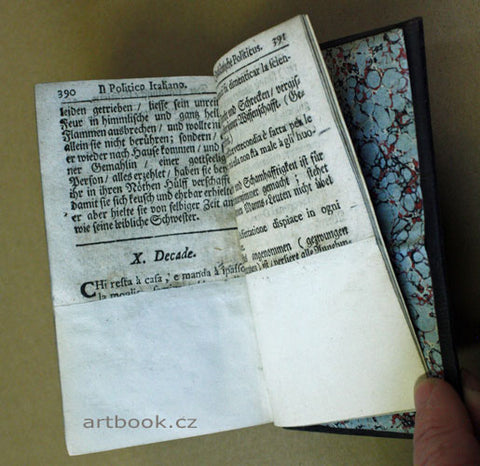 390 Il Politico Italiano.
leiden getrieben / liesse sein unrein
Feur in himmlische und gantz heil
Flammen ausbrechen / und wollte n
allein sie nicht berühren; sondern /
er wieder nach Hause kommen / und s
ner Gemahlin / einer gottselig
Person / alles erzehlet / haben sie be
ihr in ihren Nöthen Hülff verschaff
Damit sie sich keusch und ehrbar erhielte
er aber hielte sie von selbiger Zeit an
wie seine leibliche Schwester.
X. Decade.
CHi resta à casa, e manda à
la moglie
Politicus. 391
dimenticar la scien-
und Schrecken / vergis-
Wissenschafft. (Ge-
fatta per le
male à gli huo-
und Schamhafftigkeit ist für
gemacht; sicher
leuten nicht übel
dispiace in ogni
ingenommen (gezwungen
artbook.cz